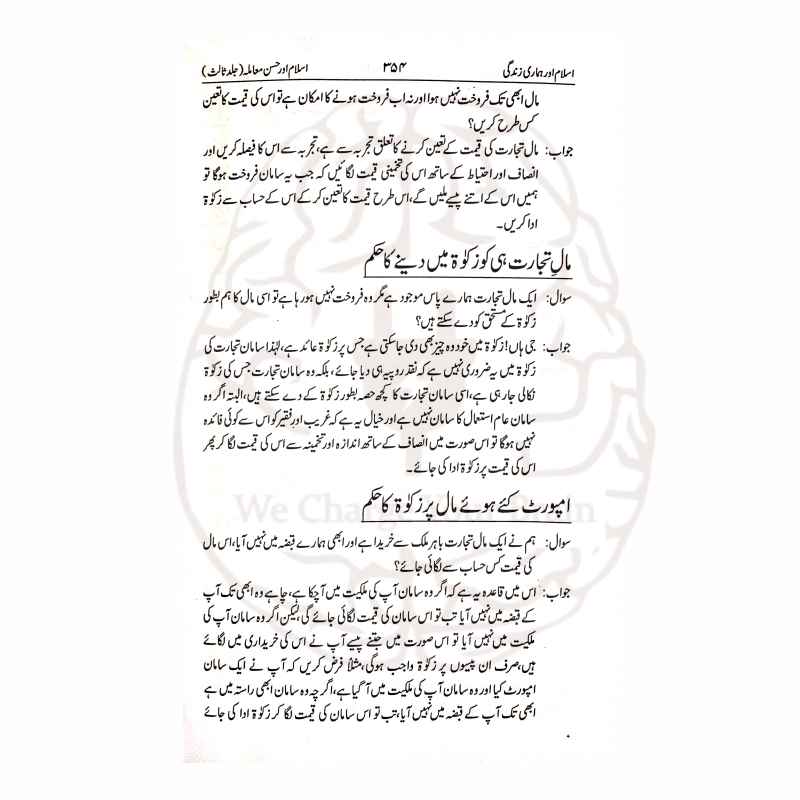 اسلام اور ہماری زندگی ۳۵۴ اسلام اور حسن معاملہ (جلد ثالث)
مال ابھی تک فروخت نہیں ہوا اور نہ اب فروخت ہونے کا امکان ہے تو اس کی قیمت کا تعین
کس طرح کریں؟
جواب: مال تجارت کی قیمت کے تعین کرنے کا تعلق تجربہ سے ہے، تجربہ سے اس کا فیصلہ کریں اور
انصاف اور احتیاط کے ساتھ اس کی تخمینی قیمت لگائیں کہ جب یہ سامان فروخت ہوگا تو
ہمیں اس کے اتنے پیسے ملیں گے، اس طرح قیمت کا تعین کر کے اس کے حساب سے زکوٰۃ
ادا کریں۔
مالِ تجارت ہی کو زکوٰۃ میں دینے کا حکم
سوال: ایک مال تجارت ہمارے پاس موجود ہے مگر وہ فروخت نہیں ہو رہا ہے تو اسی مال کا ہم بطور
زکوٰۃ کے مستحق کو دے سکتے ہیں؟
جواب: جی ہاں! زکوٰۃ میں خود وہ چیز بھی دی جا سکتی ہے جس پر زکوٰۃ عائد ہے، لہٰذا سامان تجارت کی
زکوٰۃ میں یہ ضروری نہیں ہے کہ نقد روپیہ ہی دیا جائے، بلکہ وہ سامان تجارت جس کی زکوٰۃ
نکالی جا رہی ہے، اسی سامان تجارت کا کچھ حصہ بطور زکوٰۃ کے دے سکتے ہیں، البتہ اگر وہ
سامان عام استعمال کا سامان نہیں ہے اور خیال یہ ہے کہ غریب اور فقیر کو اس سے کوئی فائدہ
نہیں ہوگا تو اس صورت میں انصاف کے ساتھ اندازہ اور تخمینہ سے اس کی قیمت لگا کر پھر
اس کی قیمت پر زکوٰۃ ادا کی جائے۔
امپورٹ کئے ہوئے مال پر زکوٰۃ کا حکم
We Charge Your Brain
سوال: ہم نے ایک مال تجارت باہر ملک سے خریدا ہے اور ابھی ہمارے قبضہ میں نہیں آیا، اس مال
کی قیمت کس حساب سے لگائی جائے؟
جواب: اس میں قاعدہ یہ ہے کہ اگر وہ سامان آپ کی ملکیت میں آچکا ہے، چاہے وہ ابھی تک آپ
کے قبضہ میں نہیں آیا تب تو اس سامان کی قیمت لگائی جائے گی، لیکن اگر وہ سامان آپ کی
ملکیت میں نہیں آیا تو اس صورت میں جتنے پیسے آپ نے اس کی خریداری میں لگائے
ہیں، صرف ان پیسوں پر زکوٰۃ واجب ہوگی، مثلاً فرض کریں کہ آپ نے ایک سامان
امپورٹ کیا اور وہ سامان آپ کی ملکیت میں آگیا ہے، اگرچہ وہ سامان ابھی راستہ میں ہے
ابھی تک آپ کے قبضہ میں نہیں آیا، تب تو اس سامان کی قیمت لگا کر زکوٰۃ ادا کی جائے